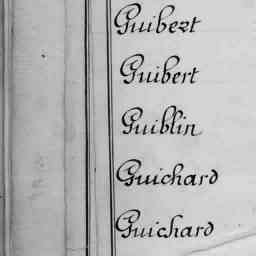 Guibert
Guibert
Guiblin
Guichard
Guichard